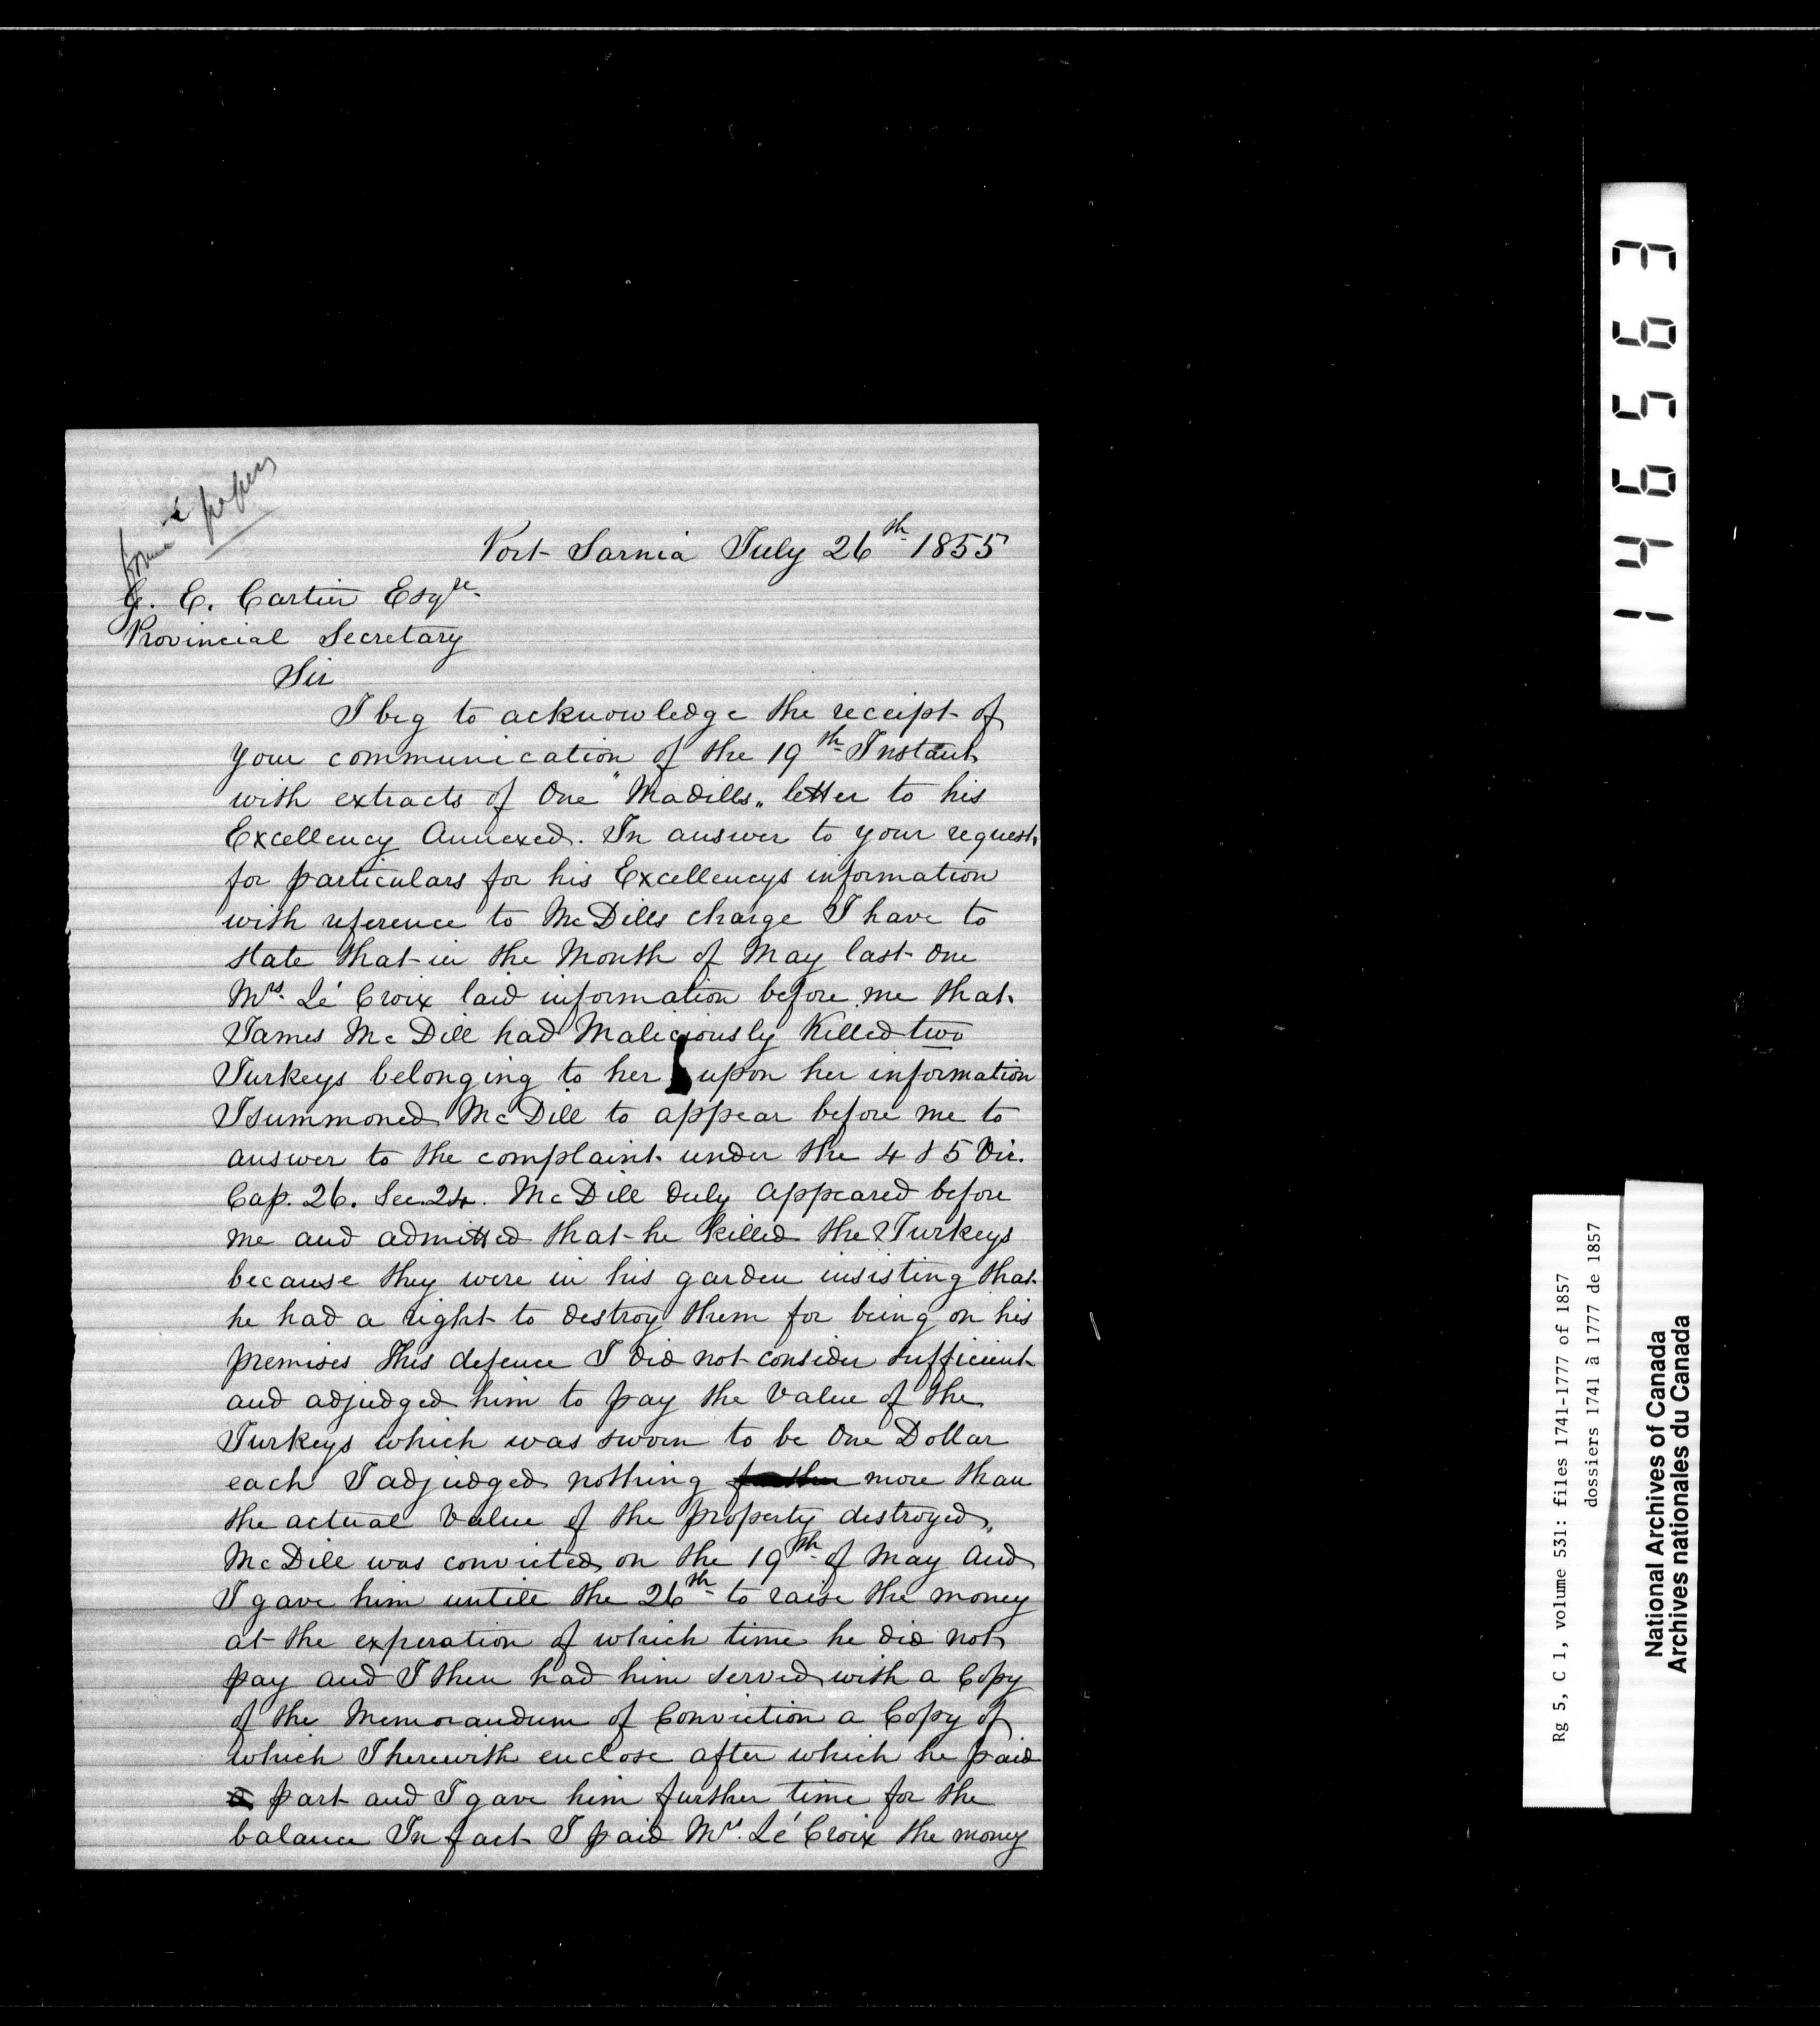 & papers
Port Sarnia July 26th 1855
G. E. Cartier Esqre
Provincial Secretary
Sir
I beg to acknowledge the receipt of
your communication of the 19th Instant
with extracts of One "Madills" letter to his
Excellency Annexed. In answer to your request
for particulars for his Excellencys information
with reference to McDills charge I have to
state that in the Month of May last One
Mrs. Lé Croix laid information before me that
James McDill had Maliciously Killed two
Turkeys belonging to her upon her information
I summoned McDill to appear before me to
answer to the complaint under the 4 & 5 Vic.
Cap. 26. Sec. 24. McDill duly appeared before
me and admitted that he killed the Turkeys
because they were in his garden insisting that
he had a right to destroy them for being on his
premises This defence I did not consider sufficient
and adjudged him to pay the Value of the
Turkeys which was sworn to be One Dollar
each I adjudged nothing further more than
the actual Value of the property destroyed,
McDill was convicted on the 19th of May and
I gave him untill the 26th to raise the money
at the experation of which time he did not
pay and I then had him served with a Copy
of the Memorandum of Conviction a Copy of
which I herewith enclose after which he paid
a part and I gave him further time for the
balance In fact I paid Mrs. Lé Croix the money
146563
Rg 5, C 1, volume 531: files 1741-1777 of 1857
dossiers 1741 à 1777 de 1857
National Archives of Canada
Archives nationales du Canada